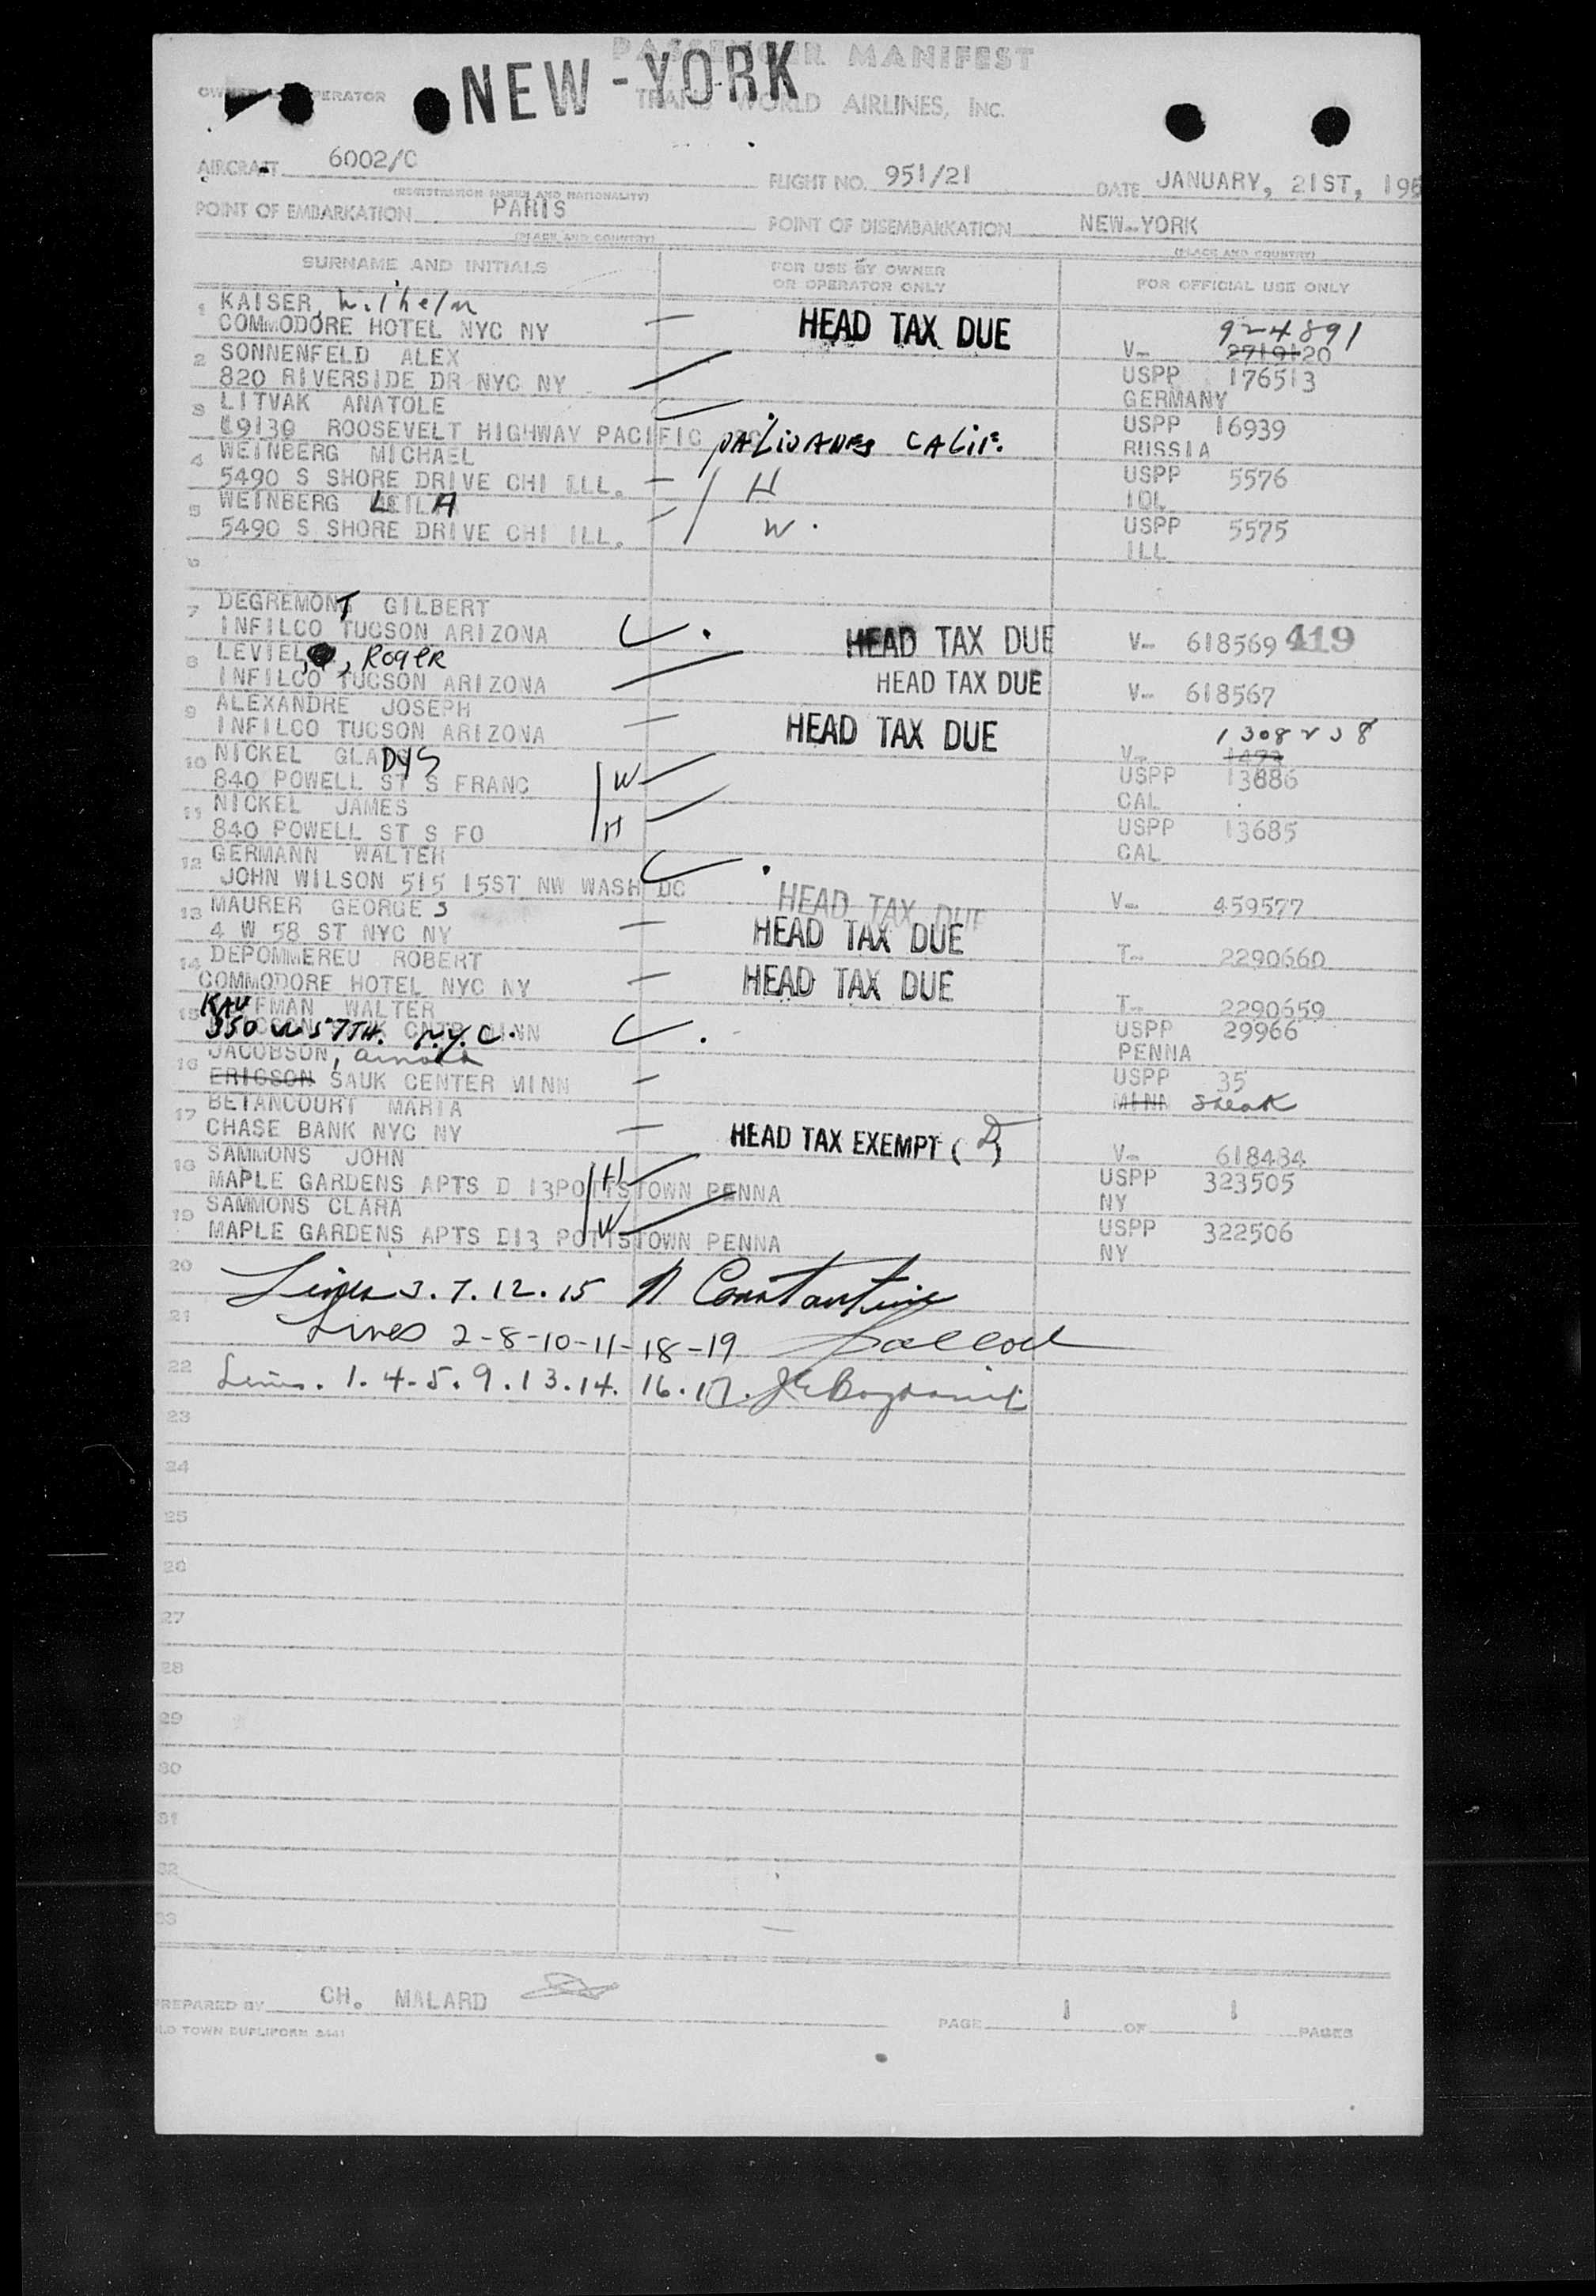 PASSENGER MANIFEST
NEW-YORK
OWNER OPERATOR TRANS WORLD AIRLINES, INC.
AIRCRAFT 6002/C FLIGHT NO. 951/21 DATE JANUARY, 21ST, 195
(REGISTRATION MARKS AND NATIONALITY)
POINT OF EMBARKATION PARIS POINT OF DISEMBARKATION NEW-YORK
(PLACE AND COUNTRY) (PLACE AND COUNTRY)
SURNAME AND INITIALS FOR USE BY OWNER OR OPERATOR ONLY FOR OFFICIAL USE ONLY
1 KAISER, Wilhelm
COMMODORE HOTEL NYC NY — HEAD TAX DUE 924891
V- 2719120
2 SONNENFELD ALEX
820 RIVERSIDE DR NYC NY USPP 176513
GERMANY
3 LITVAK ANATOLE
19130 ROOSEVELT HIGHWAY PACIFIC PALISADES CALIF. USPP 16939
RUSSIA
4 WEINBERG MICHAEL
5490 S SHORE DRIVE CHI ILL. — H USPP 5576
IOL
5 WEINBERG LEILA
5490 S SHORE DRIVE CHI ILL. — W. USPP 5575
ILL
6
7 DEGREMONT GILBERT
INFILCO TUCSON ARIZONA HEAD TAX DUE V- 618569 419
8 LEVIEL, ROGER
INFILCO TUCSON ARIZONA HEAD TAX DUE V- 618567
9 ALEXANDRE JOSEPH
INFILCO TUCSON ARIZONA — HEAD TAX DUE 1308238
V- 1473
10 NICKEL GLADYS
840 POWELL ST S FRANC W USPP 13686
CAL
11 NICKEL JAMES
840 POWELL ST S FO H USPP 13685
CAL
12 GERMANN WALTER
JOHN WILSON 515 15ST NW WASH DC HEAD TAX DUE V- 459577
13 MAURER GEORGES
4 W 58 ST NYC NY — HEAD TAX DUE T- 2290660
14 DEPOMMEREU ROBERT
COMMODORE HOTEL NYC NY — HEAD TAX DUE T- 2290659
15 KAUFFMAN WALTER
350 W 57TH. N.Y.C. USPP 29966
PENNA
16 JACOBSON, Arnold
ERICSON SAUK CENTER MINN — USPP 35
MINN
17 BETANCOURT MARIA
CHASE BANK NYC NY — HEAD TAX EXEMPT ( ) V- 618484
18 SAMMONS JOHN
MAPLE GARDENS APTS D 13POTTSTOWN PENNA H USPP 323505
NY
19 SAMMONS CLARA
MAPLE GARDENS APTS D13 POTTSTOWN PENNA W USPP 322506
NY
20 Lines 3.7.12.15 N Constantine
21 Lines 2-8-10-11-18-19
22 Lines. 1.4-5.9.13.14. 16.17.
23
24
25
26
27
28
29
30
31
32
33
PREPARED BY CH. MALARD PAGE 1 OF 1 PAGES
OLD TOWN DUPLIFORM